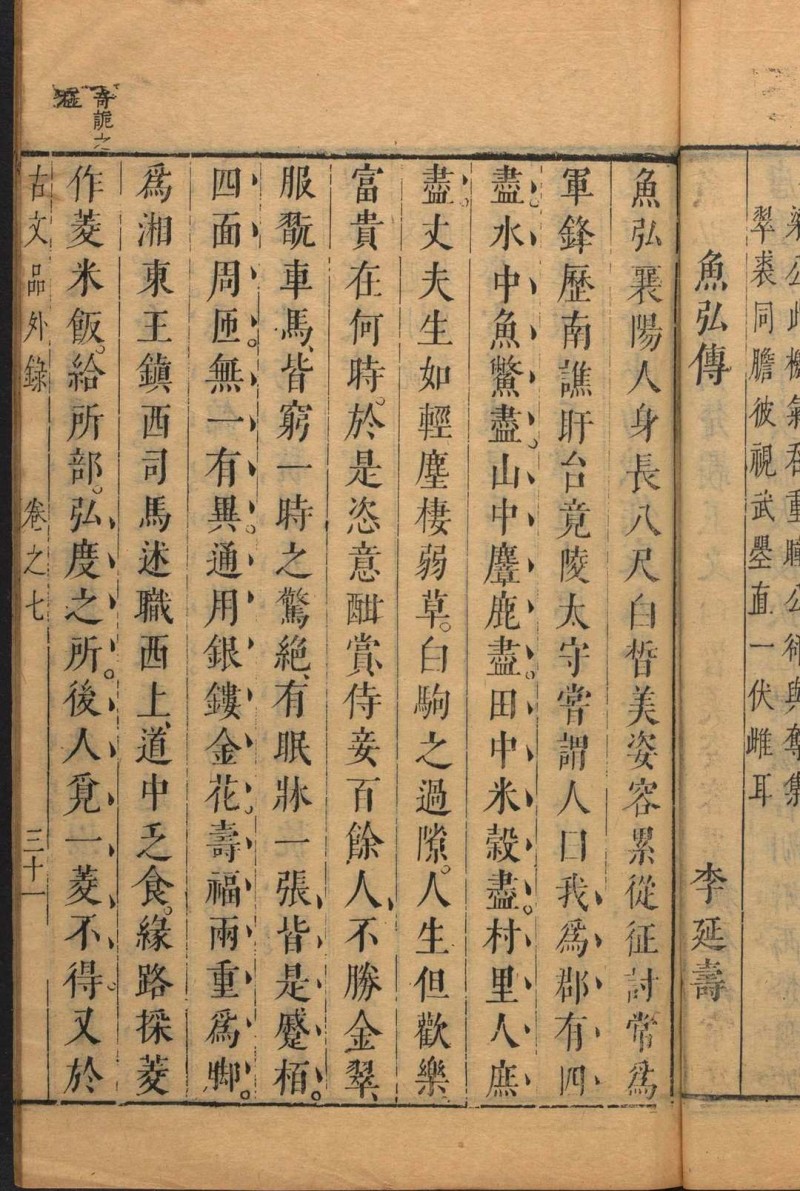 翠裘同膽彼視武曌直一伏雌耳
魚弘傳　李延壽
魚弘襄陽人身長八尺白晳美姿容累從征討常爲
軍鋒歷南譙盱台竟陵太守嘗謂人曰我爲郡有四
盡水中魚鱉盡山中麞鹿盡田中米穀盡村里人庶
盡丈夫生如輕塵棲弱草白駒之過隙人生但歡樂
富貴在何時於是恣意酣賞侍妾百餘人不勝金翠
服翫車馬皆窮一時之驚絶有眠牀一張皆是蹙栢
四面周匝無一有異通用銀鏤金花壽福兩重爲脚
爲湘東王鎮西司馬述職西上道中乏食緣路採菱
作菱米飯給所部弘度之所後人覓一菱不得又於
奇詭之
古文品外錄　卷之七　三十一